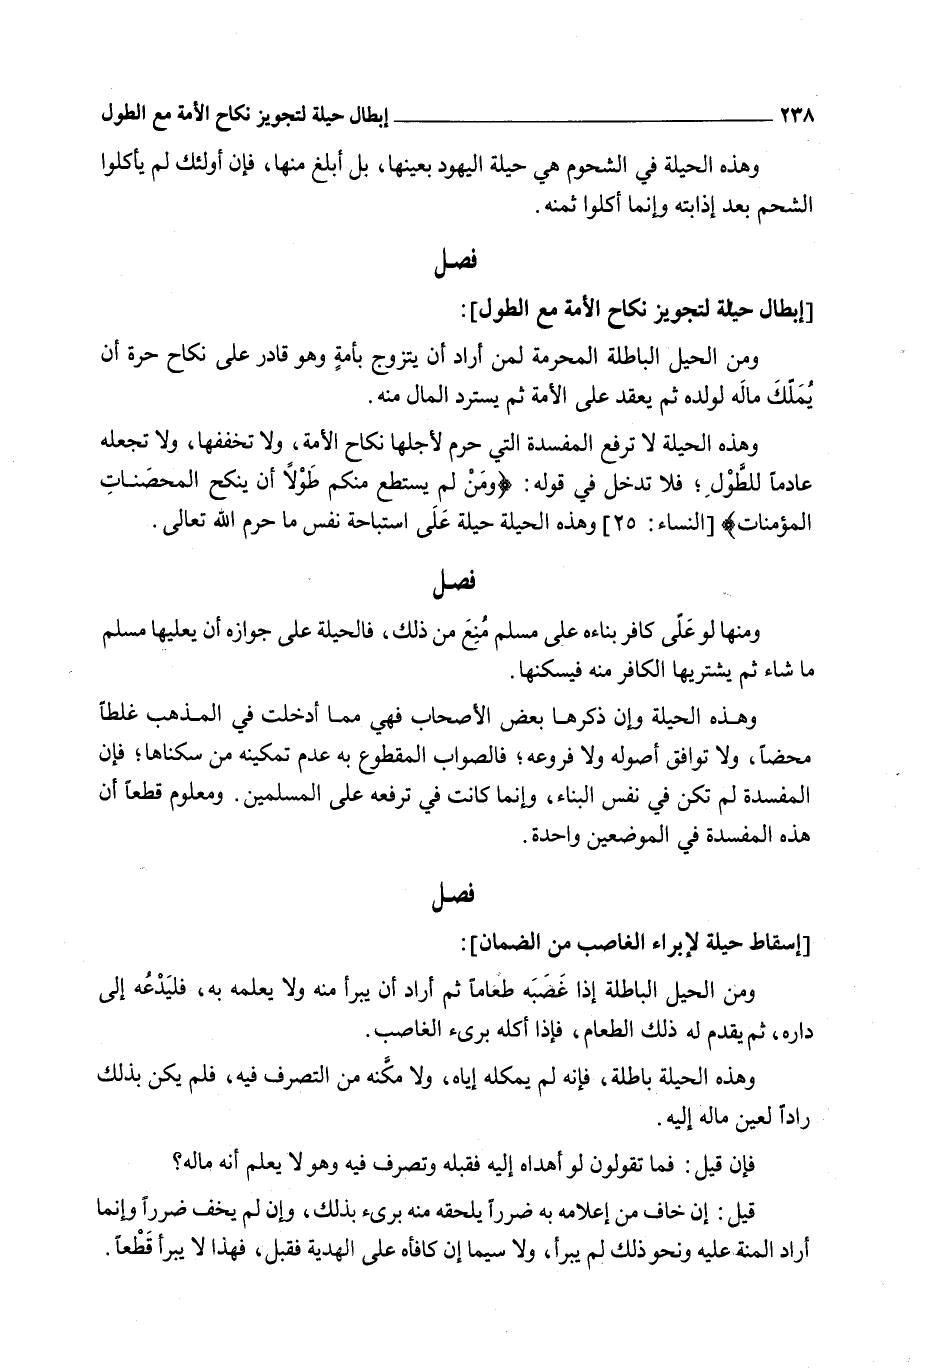 ٢٣٨ ــــــــــــــــ إبطال حيلة لتجويز نكاح الأمة مع الطول
وهذه الحيلة في الشحوم هي حيلة اليهود بعينها، بل أبلغ منها، فإن أولئك لم يأكلوا
الشحم بعد إذابته وإنما أكلوا ثمنه.
فصل
[إبطال حيلة لتجويز نكاح الأمة مع الطول]:
ومن الحيل الباطلة المحرمة لمن أراد أن يتزوج بأمةٍ وهو قادر على نكاح حرة أن
يُمَلِّكَ مالَه لولده ثم يعقد على الأمة ثم يسترد المال منه.
وهذه الحيلة لا ترفع المفسدة التي حرم لأجلها نكاح الأمة، ولا تخففها، ولا تجعله
عادماً للطَّوْلِ؛ فلا تدخل في قوله: ﴿ومَنْ لم يستطع منكم طَوْلاً أن ينكح المحصَناتِ
المؤمنات﴾ [النساء: ٢٥] وهذه الحيلة حيلة عَلَى استباحة نفس ما حرم الله تعالى.
فصل
ومنها لو عَلَّى كافر بناءه على مسلم مُنِعَ من ذلك، فالحيلة على جوازه أن يعليها مسلم
ما شاء ثم يشتريها الكافر منه فيسكنها.
وهذه الحيلة وإن ذكرها بعض الأصحاب فهي مما أدخلت في المذهب غلطاً
محضاً، ولا توافق أصوله ولا فروعه؛ فالصواب المقطوع به عدم تمكينه من سكناها؛ فإن
المفسدة لم تكن في نفس البناء، وإنما كانت في ترفعه على المسلمين. ومعلوم قطعاً أن
هذه المفسدة في الموضعين واحدة.
فصل
[إسقاط حيلة لإبراء الغاصب من الضمان]:
ومن الحيل الباطلة إذا غَصَبَه طعاماً ثم أراد أن يبرأ منه ولا يعلمه به، فليَدْعُه إلى
داره، ثم يقدم له ذلك الطعام، فإذا أكله برىء الغاصب.
وهذه الحيلة باطلة، فإنه لم يمكله إياه، ولا مكَّنه من التصرف فيه، فلم يكن بذلك
راداً لعين ماله إليه.
فإن قيل: فما تقولون لو أهداه إليه فقبله وتصرف فيه وهو لا يعلم أنه ماله؟
قيل: إن خاف من إعلامه به ضرراً يلحقه منه برىء بذلك، وإن لم يخف ضرراً وإنما
أراد المنة عليه ونحو ذلك لم يبرأ، ولا سيما إن كافأه على الهدية فقبل، فهذا لا يبرأ قَطْعاً.